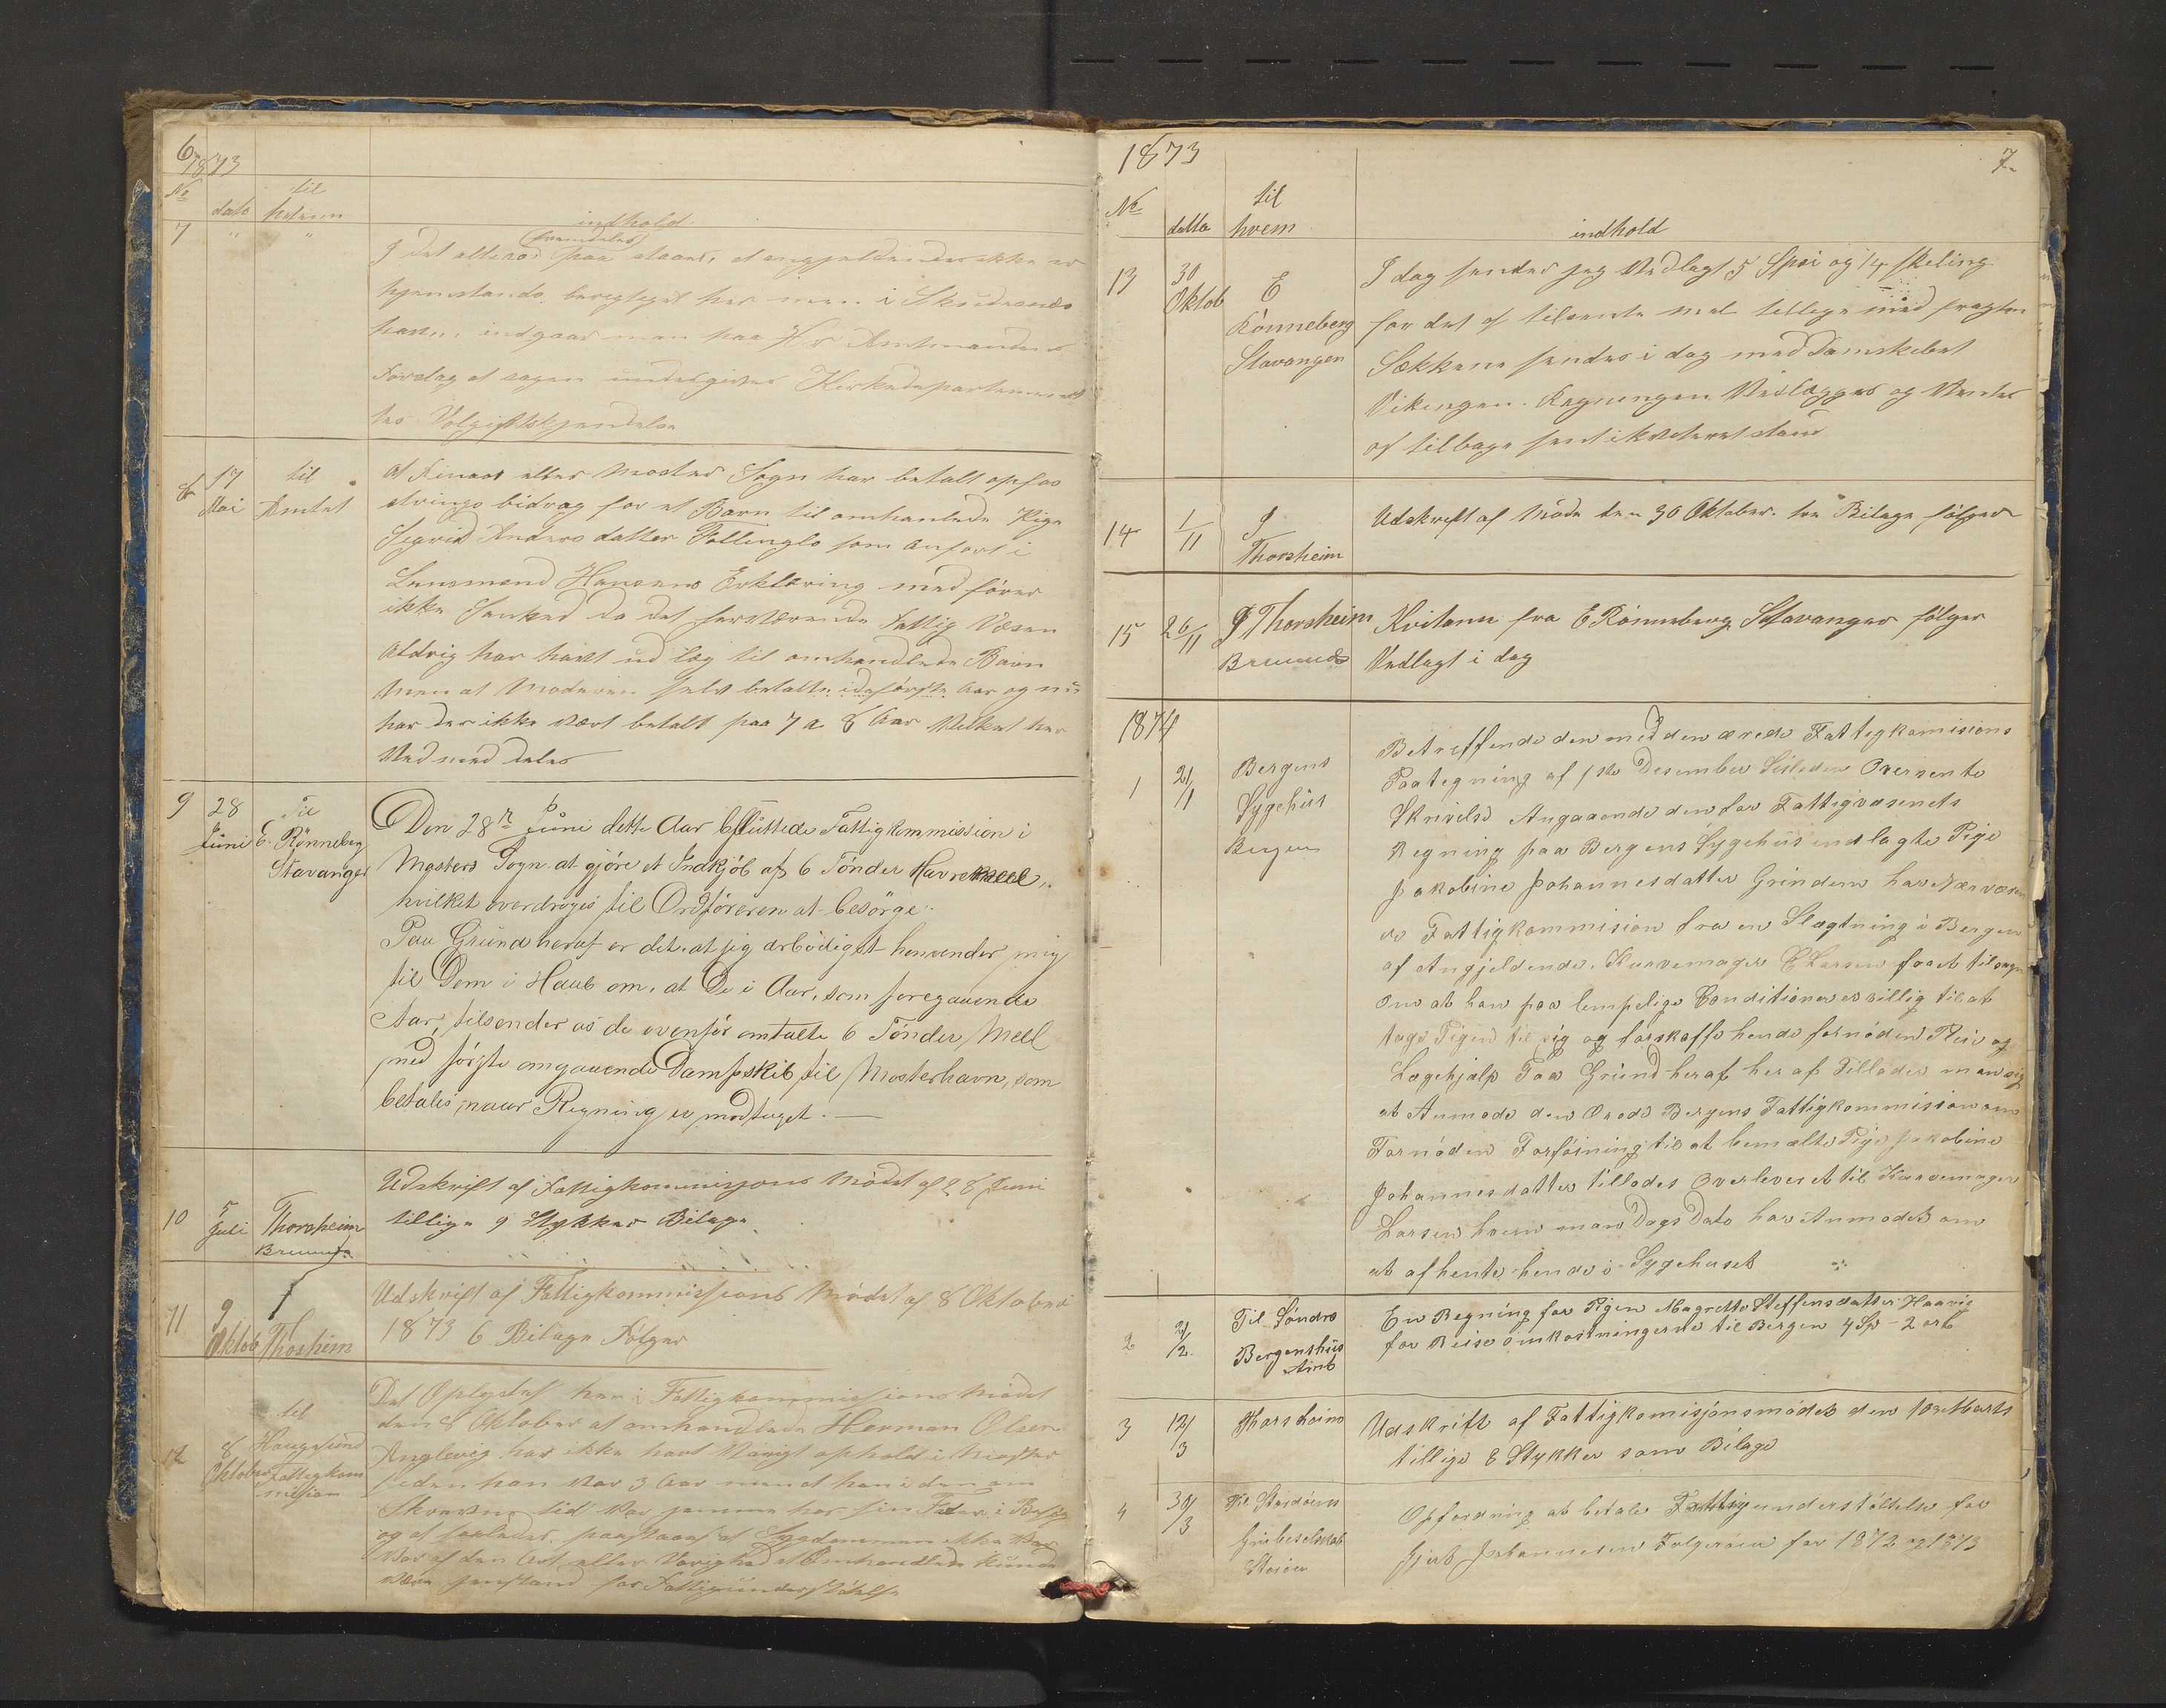 6
1873
No dato til hvem indhold
7 " "
I det alterod fremdeles paa staaes, at angjældende ikke er
hjemstands beregtiget her men i Skudesnæs
havn, indgaar man paa Hr Amtmandens
Forslag at sagen undergives Kirkedepartemen
tes Volgiftskjendelse
8 17 Mai til Amtet
At Finaas eller Moster Sogn har betalt opfos
trings bidrag for et Barn til omhanlede Pige
Sigrid Anders datter Follinglo som anført i
Lensmand Hansens Erklæring medfører
ikke da det herværende Fattig Væsen
Aldrig har havt ud læg til omhandlede Barn
Men at Moderen selv betalte ideførste Aar og nu
har der ikke vært betalt paa 7 a 8 Aar Vilket her
Ved med deles
9 28 Juni Til E. Rønneberg Stavanger
Den 28de Juni dette Aar besluttede Fattigkommission i
Mosters Sogn at gjøre et Indkjøb af 6 Tønder Havremeel,
hvilket overdroges til Ordføreren at besørge.
Paa Grund heraf er det at jeg ærbødigst henvender mig
til Dem i Haab om, at De i Aar, som foregaaende
Aar, tilsender os de ovenfor omtalte 6 Tønder Meel
med første omgaaende Dampskib til Mosterhavn, som
betales, naar Regning er modtaget. —
10 5 Juli Thorsheim Bremnes
Udskrift af Fattigkommisjons Mødet af 28 Juni
tillige 9 Stykker Bilage
11 9 Oktob Thosheim
Udskrift af Fattigkommissions Mødet af 8 Oktober
1873 6 Bilage Følger
12 8 Oktober til Haugesund Fattigkom mission
Det Oplystes her i Fattigkommissions Mødet
den 8 Oktober at omhandlede Herman Olsen
Anglevig har ikke havt Varigt ophold i Moster
siden han var 3 Aar men at han i den
tid var hos sin Fader i
og at saaledes paastaaes at Sygdommen ikke var
var af den Art eller Varighed at Omhandlede kunde
være jenstand for Fattigunderstøttelse
1873 7
No datto til hvem indhold
13 30 Oktob E Rönneberg Stavangen
I dag sender jeg Vedlagt 5 Spsi og 14 skeling
for det af tilsente mel tillige med fragten
Sækkene sendes i dag med Damskebet
Vikingen. Regningen Vedlægges og Ventes
af tilbage sent ikvteret stand
14 1/11 J Thorsheim
Udskrift af Møde den 30 Oktober. tre Bilage følger
15 26/11 J Thorsheim Bremnes
Kvitansi fra E Rönneberg Stavanger følger
Vedlagt i dag
1874
1 21/1 Bergens Sygehus Bergen
Betreffende den med den ærede Fattigkomisions
Paategning af 1ste Desember Sisleden Oversente
Skrivelse Angaaende den for Fattigvæsenets
Regning paa Bergens Sygehus indlagte Pige
Jakobine Johannesdatter Grinden har Nærværen
de Fattigkommision fra en Slægtning i Bergen
af Angjeldende, Kurvemager E Larsen faaet tilsagn
om at han paa lempelige Conditioner er villig til at
tage Pigen til sig og forskaffe hende fornøden Pleie og
Lægehjælp Paa Grund heraf her af Tillader man sig
at Anmode den Ærede Bergens Fattigkommission om
Fornøden Forføining til at bemælte Pige Jakobine
Johannesdatter tillades Overleveret til Kurvemager
Larsen hvem man Dags Dato har Anmodet om
at afhente hende i Sygehuset
2 21/2 Til Söndre Bergenshus Amt
En Regning for Pigen Magrette Steffensdatter Haavig
for Reise omkostningerne til Bergen 4 Sp - 2 ort
3 12/3 Thorsheim
Udskrift af Fattigkomisjonsmødet den 10 Marts
tillige 8 Stykker som Bilage
4 30/3 Til Stordöens Grubeselskab Storöen
Opfordring at betale Fattigunderstöttelse for
Gjert Johannesen Folgeröen for 1872 og 1873